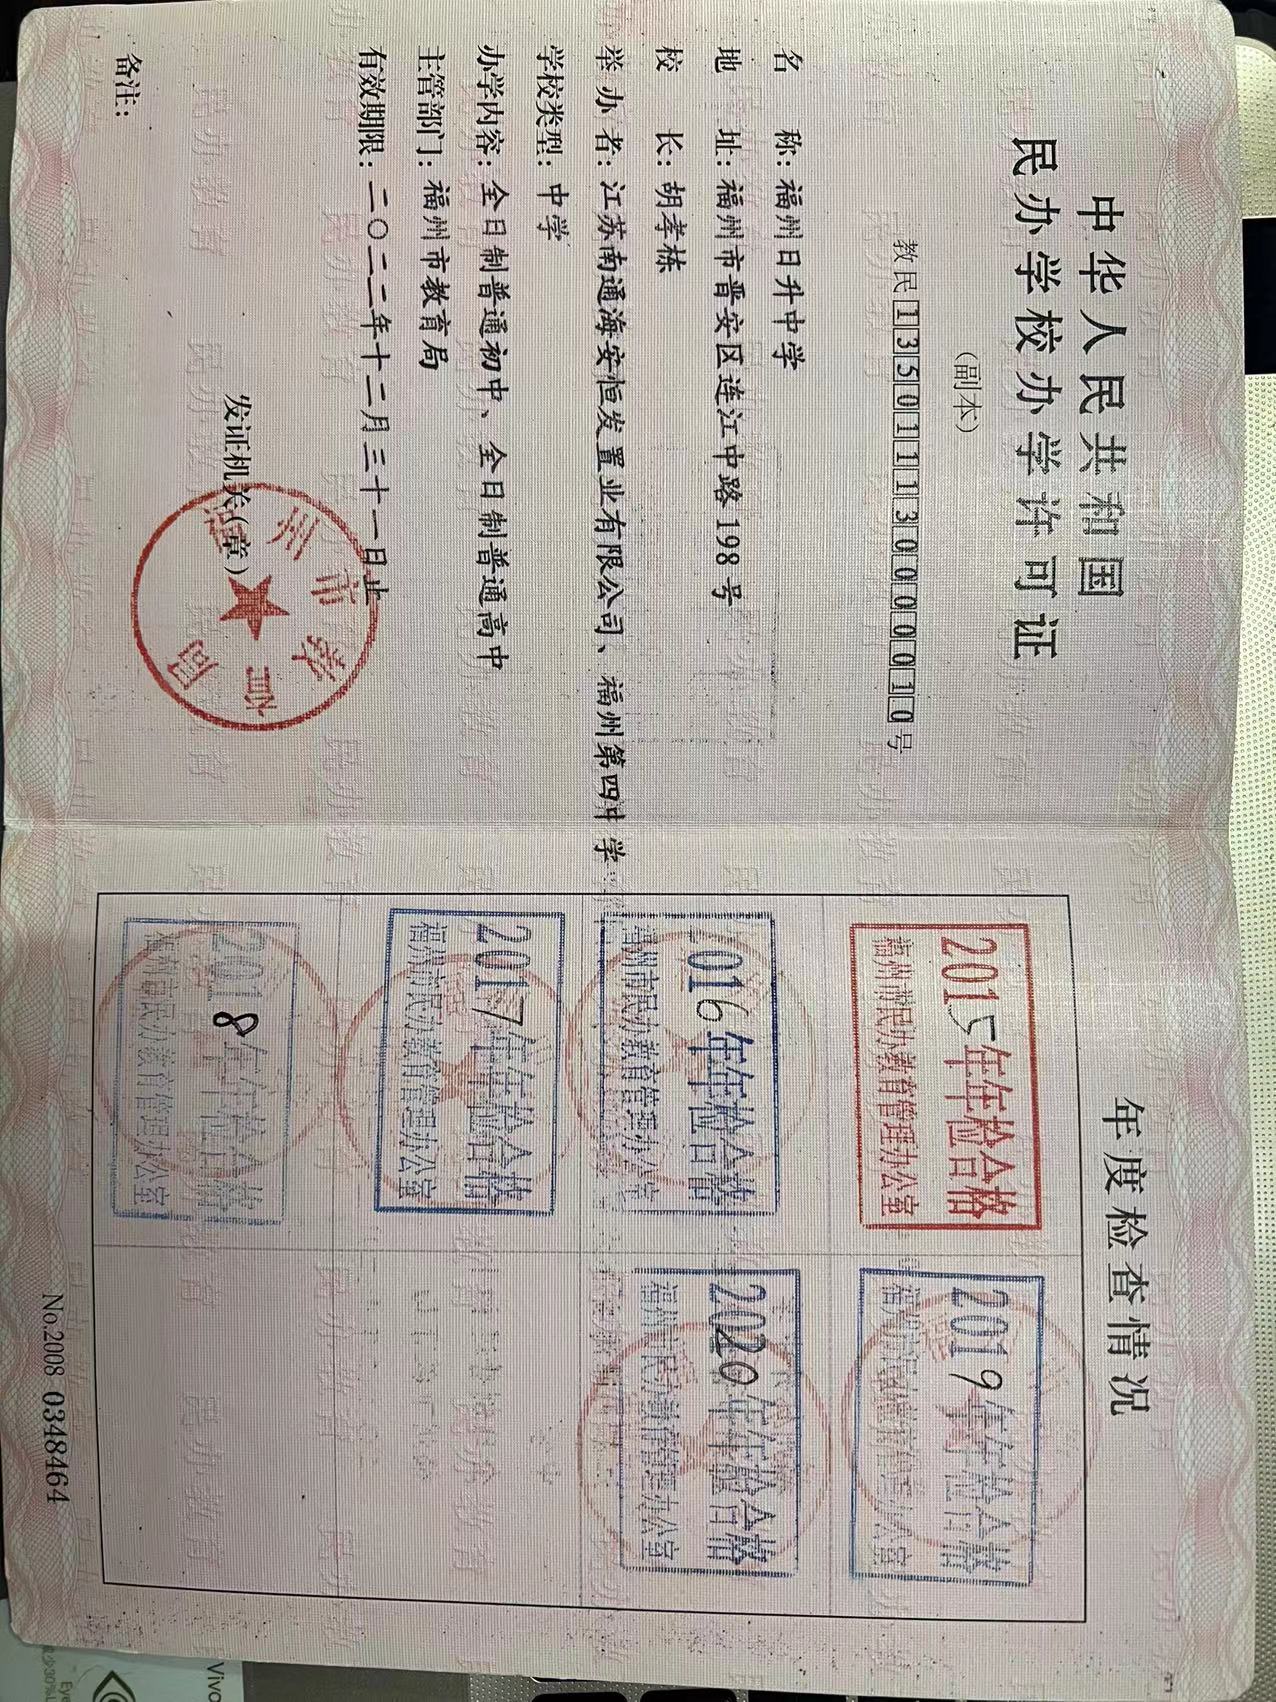 中华人民共和国
民办学校办学许可证
（副本）
教民135011130000010号
名 称：福州日升中学
地 址：福州市晋安区连江中路198号
校 长：胡孝栋
举 办 者：江苏南通海安恒发置业有限公司、福州第四中学
学校类型：中学
办学内容：全日制普通初中、全日制普通高中
主管部门：福州市教育局
有效期限：二〇二二年十二月三十一日止
发证机关（章）
福州市教育局
备注：
年度检查情况
2015年年检合格
福州市民办教育管理办公室
2019年年检合格
福州市民办教育管理办公室
2016年年检合格
福州市民办教育管理办公室
2020年年检合格
福州市民办教育管理办公室
2017年年检合格
福州市民办教育管理办公室
2018年年检合格
福州市民办教育管理办公室
No.2008 0348464
Vivo
Eye